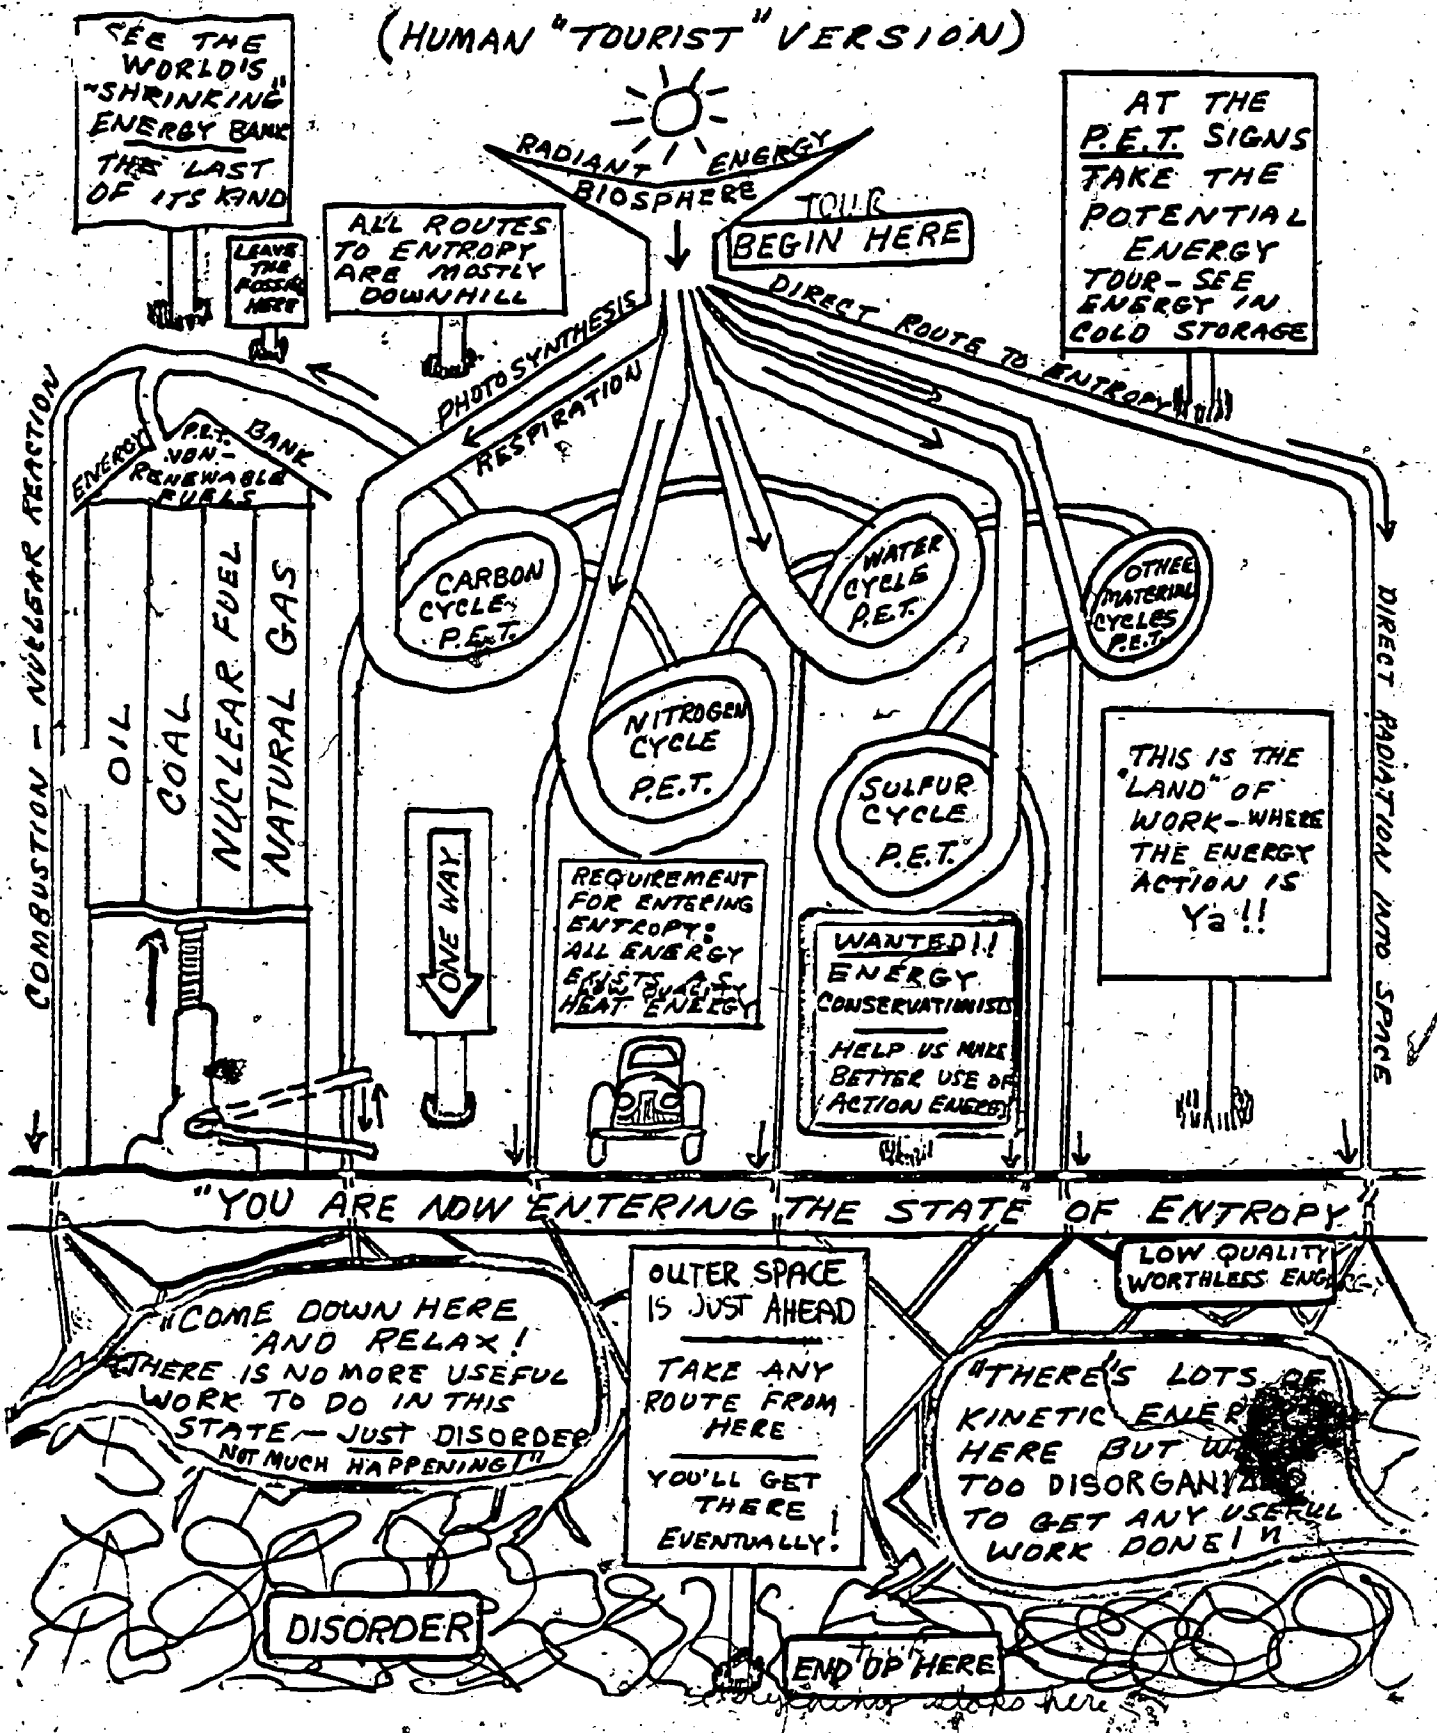 (HUMAN "TOURIST" VERSION)
SEE THE
WORLD'S
"SHRINKING"
ENERGY BANK
THE LAST
OF ITS KIND
LEAVE
THE
FOSSILS
HERE
ALL ROUTES
TO ENTROPY
ARE MOSTLY
DOWNHILL
RADIANT ENERGY
BIOSPHERE
TOUR
BEGIN HERE
AT THE
P.E.T. SIGNS
TAKE THE
POTENTIAL
ENERGY
TOUR-SEE
ENERGY IN
COLD STORAGE
PHOTOSYNTHESIS
RESPIRATION
DIRECT ROUTE TO ENTROPY
COMBUSTION - NUCLEAR REACTION
ENERGY BANK
P.E.T.
NON-
RENEWABLE
FUELS
OIL
COAL
NUCLEAR FUEL
NATURAL GAS
CARBON
CYCLE
P.E.T.
WATER
CYCLE
P.E.T.
OTHER
MATERIAL
CYCLES
P.E.T.
NITROGEN
CYCLE
P.E.T.
SULFUR
CYCLE
P.E.T.
DIRECT RADIATION INTO SPACE
ONE WAY
REQUIREMENT
FOR ENTERING
ENTROPY:
ALL ENERGY
EXISTS AS
LOW QUALITY
HEAT ENERGY
WANTED!!
ENERGY
CONSERVATIONISTS
HELP US MAKE
BETTER USE OF
ACTION ENERGY
THIS IS THE
"LAND" OF
WORK-WHERE
THE ENERGY
ACTION IS
Ya!!
"YOU ARE NOW ENTERING THE STATE" OF ENTROPY
LOW QUALITY
WORTHLESS ENERGY
"COME DOWN HERE
AND RELAX!
THERE IS NO MORE USEFUL
WORK TO DO IN THIS
STATE - JUST DISORDER
NOT MUCH HAPPENING!"
OUTER SPACE
IS JUST AHEAD
TAKE ANY
ROUTE FROM
HERE
YOU'LL GET
THERE
EVENTUALLY!
"THERE'S LOTS OF
KINETIC
HERE BUT
TOO DISORGANIZED
TO GET ANY USEFUL
WORK DONE!"
DISORDER
END UP HERE
everything stops here